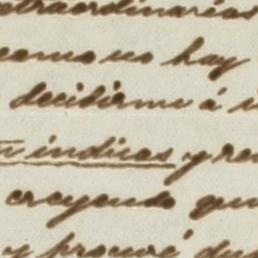 extraordinarias
como no hay
decidirme á
indicas y
creyendo que
y probé